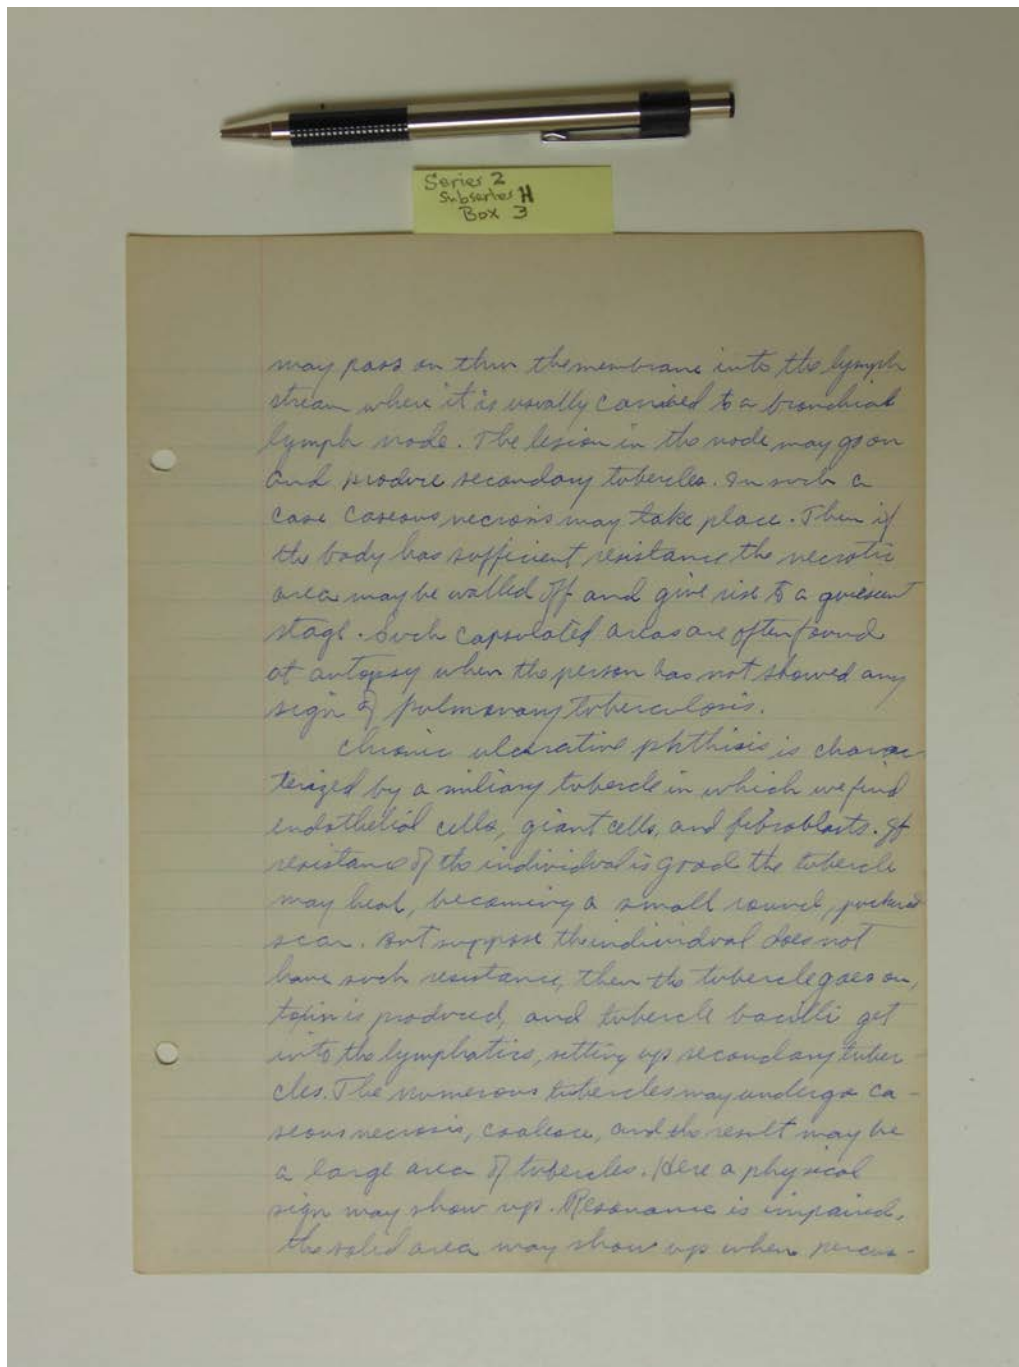 Series 2
Subseries H
Box 3
may pass on thru the membrane into the lymph
stream where it is usually carried to a bronchial
lymph node. The lesion in the node may go on
and produce secondary tubercles. In such a
case caseous necrosis may take place. Then if
the body has sufficient resistance the necrotic
area may be walled off and give rise to a quiescent
stage. Such capsulated areas are often found
at autopsy when the person has not showed any
sign of pulmonary tuberculosis.
Chronic ulcerative phthisis is charac-
terized by a miliary tubercle in which we find
endothelial cells, giant cells, and fibroblasts. If
resistance of the individual is good the tubercle
may heal, becoming a small round, puckered
scar. But suppose the individual does not
have such resistance, then the tubercle goes on,
toxin is produced, and tubercle bacilli get
into the lymphatics, setting up secondary tuber
cles. The numerous tubercles may undergo ca-
seous necrosis, coalesce, and the result may be
a large area of tubercles. Here a physical
sign may show up. Resonance is impaired,
the solid area may show up when percus-